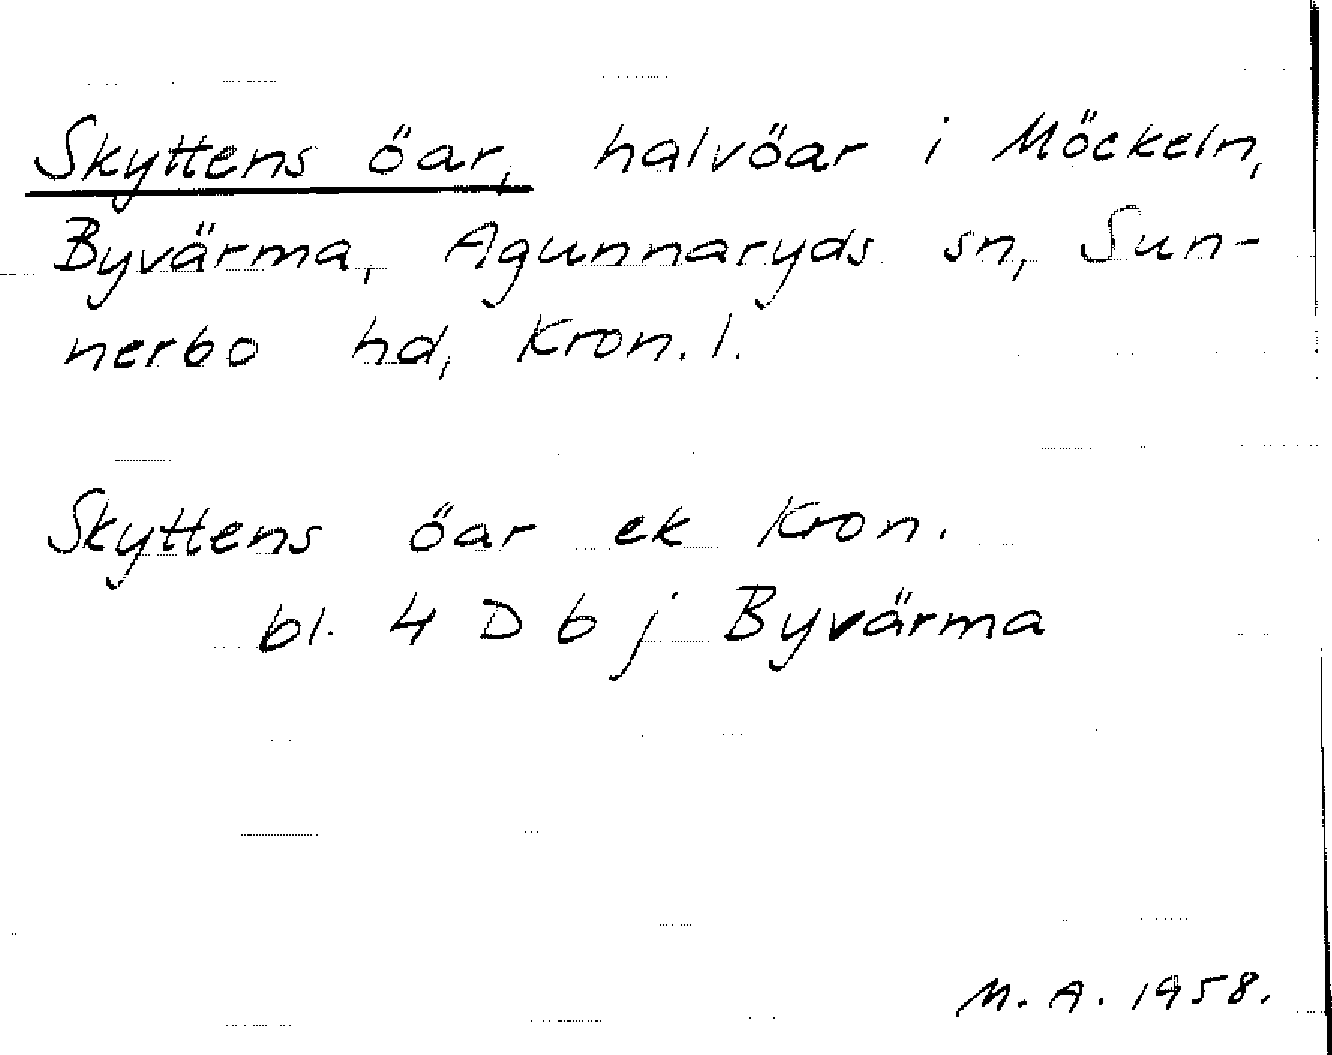 Skyttens öar, halvöar i Möckeln,
Byvärma, Agunnaryds sn, Sun-
nerbo hd, Kron. l.
Skyttens öar ek Kron.
bl. 4 D b j Byvärma
M. A. 1958.